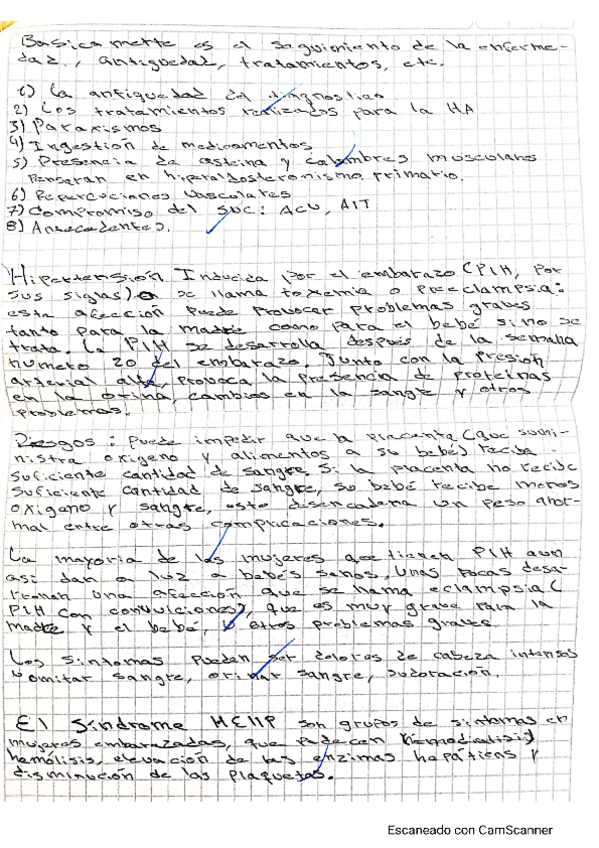 Basicamente es el seguimiento de la enferme-
dad, antiguedad, tratamientos, etc.
1) La antiguedad del diagnostico
2) Los tratamientos realizados para la HA
3) Paraxismos
4) Ingestión de medicamentos
5) Presencia de asteina y calambres musculares
Pensaran en hiperaldosteronismo primario.
6) Repercuciones Vasculares
7) Compromiso del SNC: ACV, AIT
8) Antecedentes.
Hipertensión Inducida por el embarazo (PIH, por
sus siglas) o se llama toxemia o Preeclampsia:
esta afección puede provocar problemas graves
tanto para la madre como para el bebé si no se
trata. La PIH se desarrolla después de la semana
numero 20 del embarazo. Junto con la presión
arterial alta, provoca la presencia de proteinas
en la orina, cambios en la sangre y otros
problemas.
Riesgos: puede impedir que la placenta (que sumi-
nistra oxigeno y alimentos a su bebé) reciba
suficiente cantidad de sangre. Si la placenta no recibe
suficiente cantidad de sangre, su bebé recibe menos
oxigeno y sangre, esto desencadena un peso anor-
mal entre otras complicaciones.
La mayoria de las mujeres que tienen PIH aun
asi dan a luz a bebés sanos. Unas pocas desa-
rrollan una afección que se llama eclampsia (
PIH con convulciones), que es muy grave para la
madre y el bebé, u otros problemas graves.
Los sintomas pueden ser dolores de cabeza intensos
vomitar sangre, orinar sangre, sudoración.
El Síndrome HEllP son grupos de sintomas en
mujeres embarazadas, que padecen (hemodialisis)
hemólisis, elevación de las enzimas hepátiens y
disminución de las plaquetas.
Escaneado con CamScanner